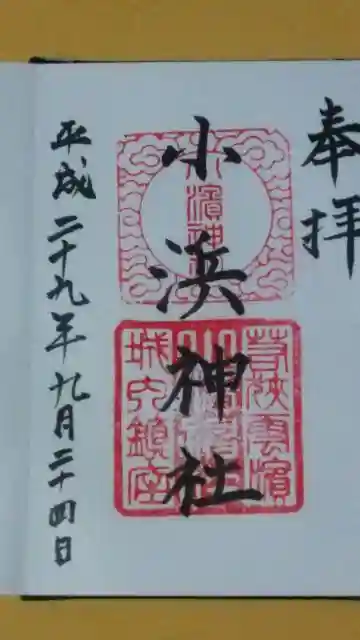 奉拝
小浜神社
小濱神社
若狭雲濱
城内鎮座
平成二十九年九月二十四日